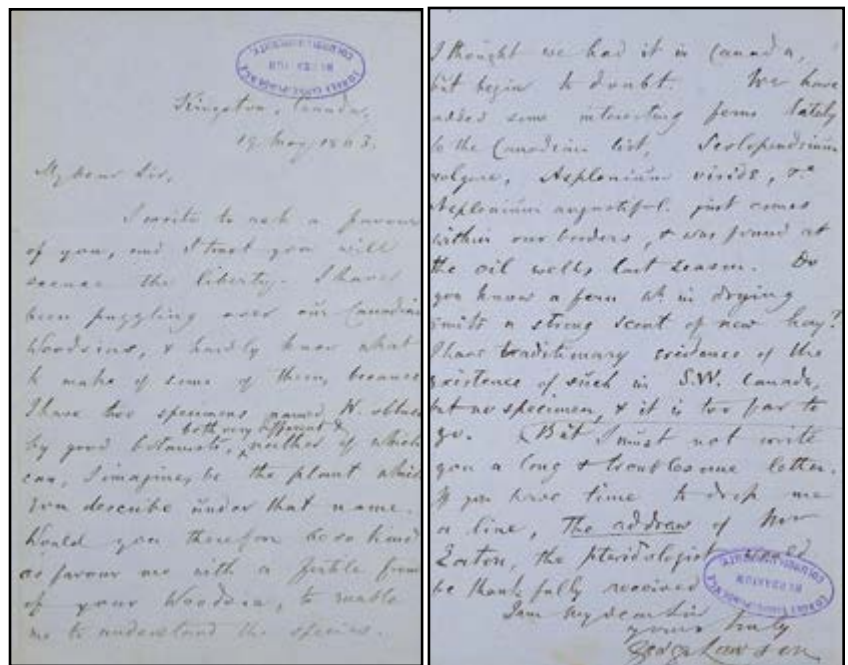 Kingston, Canada,
19 May 1863.
My dear Sir,
I write to ask a favour
of you, and I trust you will
excuse the liberty. I have
been puzzling over our Canadian
Woodsias, & hardly know what
to make of some of them, because
I have two specimens named W. obtusa
both very different &
by good botanists, neither of which
can, I imagine, be the plant which
you describe under that name.
Would you therefore be so kind
as favour me with a fertile frond
of your Woodsia, to enable
me to understand the species.
I thought we had it in Canada,
but begin to doubt. We have
added some interesting ferns lately
to the Canadian list, Scolopendrium
vulgare, Asplenium viride, &c
Asplenium angustifol. just comes
within our borders, & was found at
the oil wells last season. Do
you know a fern wh in drying
emits a strong scent of new hay?
I have traditionary evidence of the
existence of such in S.W. Canada,
but no specimen, & it is too far to
go. But I must not write
you a long & troublesome letter.
If you have time to drop me
a line, the address of
Eaton, the pteridologist would
be thankfully received
I am my dear Sir
yours truly
George Lawson